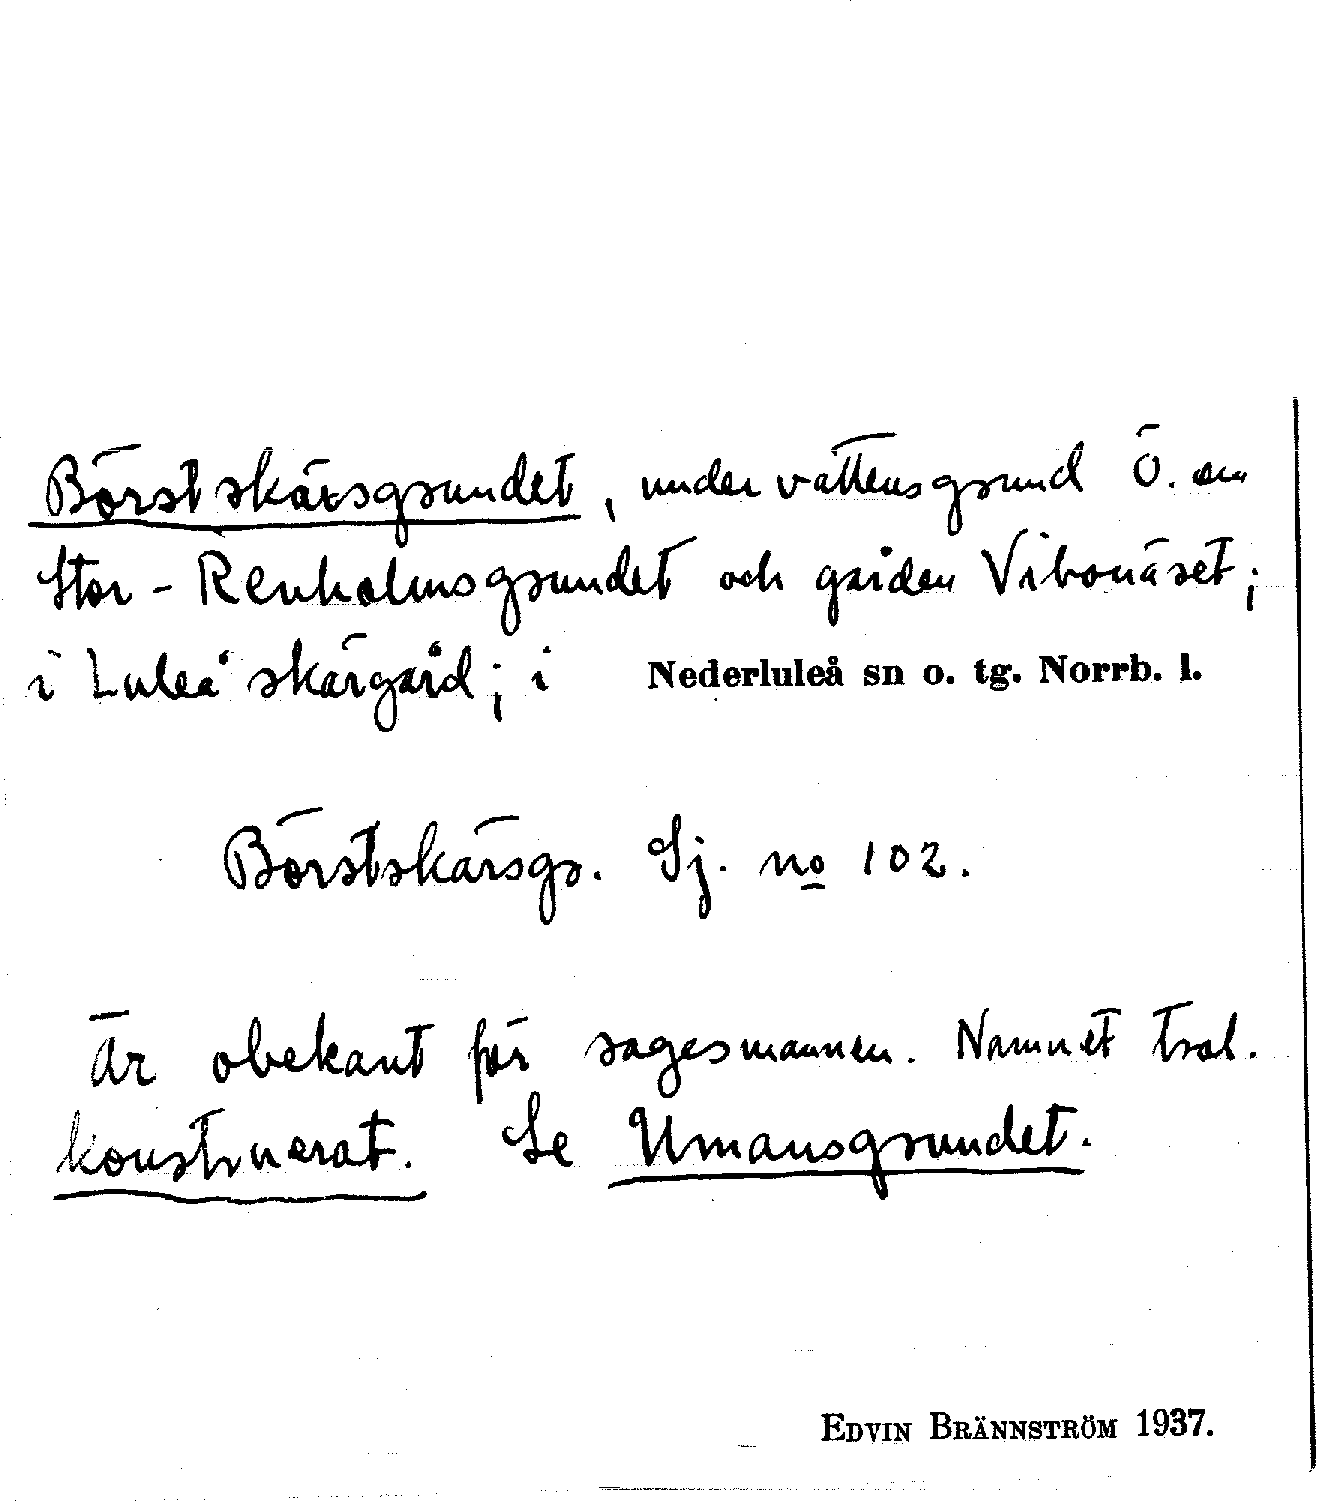 Börstskärsgrundet, undervattensgrund Ö. om
Stor-Renholmsgrundet och gården Vibonäset;
i Luleå skärgård; i Nederluleå sn o. tg. Norrb. l.
Börstskärsgr. Sj. no 102.
Är obekant för sagesmannen. Namnet trol.
konstruerat. Se Umansgrundet.
EDVIN BRÄNNSTRÖM 1937.